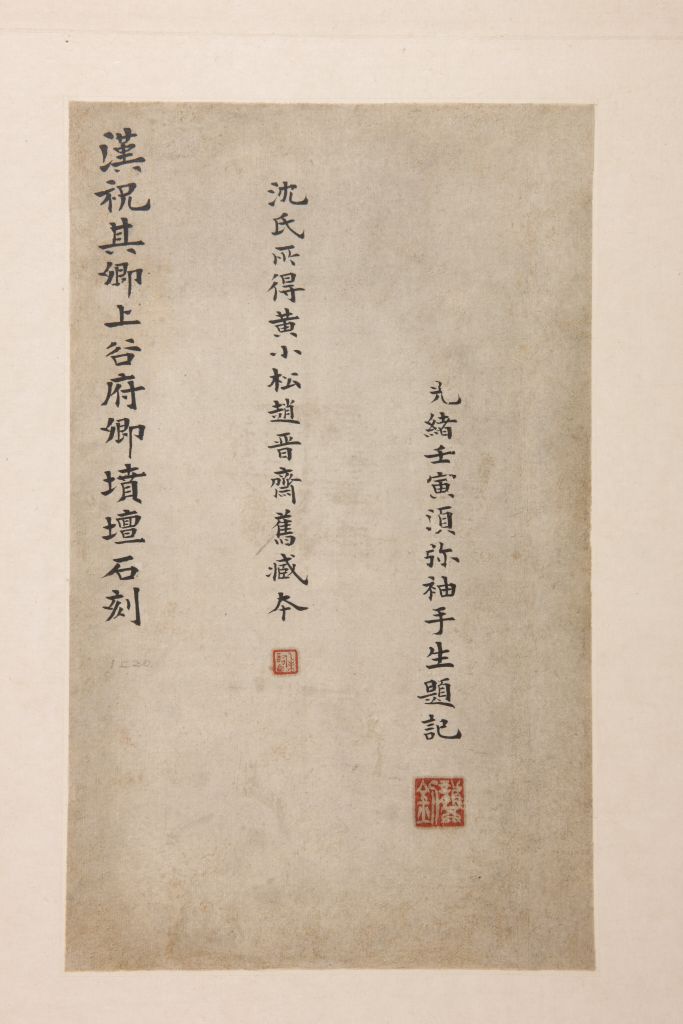 漢祝其卿上谷府卿墳壇石刻
沈氏所得黄小松趙晋齋舊臧本
光緒壬寅須弥袖手生題記
龔釗